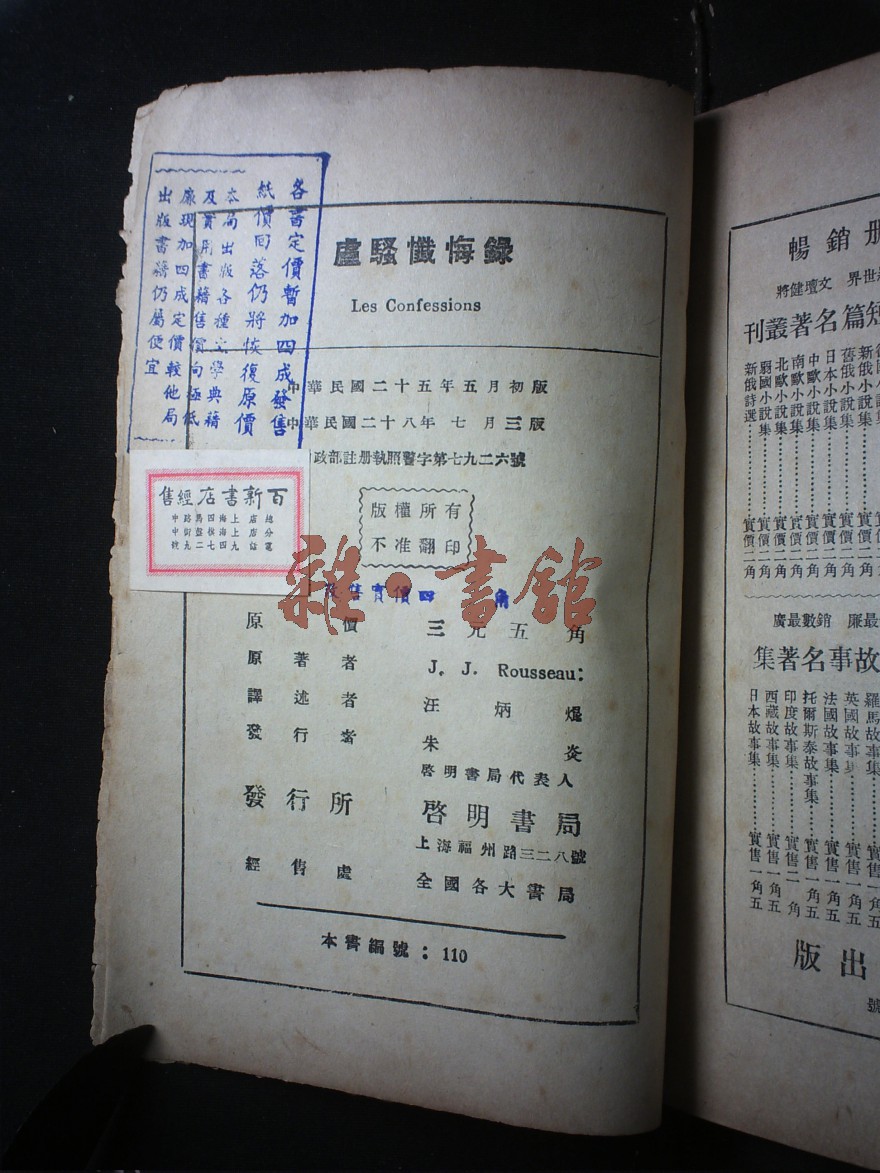 各書定價暫加四成發售
紙價回落仍將恢復原價
本局出版各種文學典籍
及實用書籍售價向極低
廉現加四成定價較他局
出版書籍仍屬便宜
盧騷懺悔錄
Les Confessions
中華民國二十五年五月初版
中華民國二十八年七月三版
政部註册執照警字第七九二六號
版權所有
不准翻印
百新書店經售
總店上海四馬路中
分店上海棋盤街中
電話九四七二九號
售實價四
角
雜·書館
原價 三元五角
原著者 J. J. Rousseau:
譯述者 汪炳焜
發行者 朱炎
啓明書局代表人
發行所 啓明書局
上海福州路三二八號
經售處 全國各大書局
本書編號：110
暢銷册
將健壇文 界世
短篇名著叢刊
舊俄小說集……實價二角
日本小說集……實價二角
中歐小說集……實價二角
南歐小說集……實價二角
北歐小說集……實價二角
弱國小說集……實價二角
新俄詩選……實價二角
廣最數銷 廉最
故事名著集
羅馬故事集……實售一角五
英國故事集……實售一角五
法國故事集……實售一角五
托爾斯泰故事集……實售一角五
印度故事集……實售二角
西藏故事集……實售一角五
日本故事集……實售一角五
出版
號